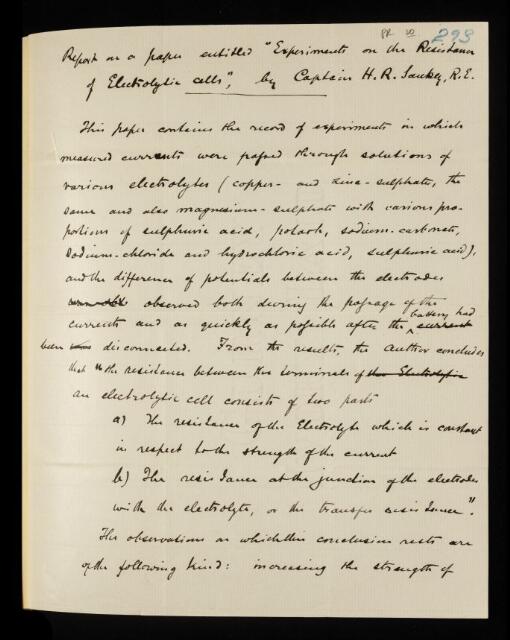 PR 10 293
Report on a paper entitled "Experiments on the Resistance
of Electrolytic cells", by Captain H. R. Sankey, R.E.
This paper contains the record of experiments in which
measured currents were passed through solutions of
various electrolytes (copper- and zinc-sulphate, the
same and also magnesium-sulphate with various pro-
portions of sulphuric acid, potash, sodium-carbonate,
Sodium-chloride and hydrochloric acid, sulphuric acid),
and the difference of potentials between the electrodes
observed both during the passage of the
currents and as quickly as possible after the current battery had
been disconnected. From the results, the author concludes
that "the resistance between the terminals of the Electrolytic
an electrolytic cell consists of two parts
a) The resistance of the Electrolyte which is constant
in respect to the strength of the current
b) The resistance at the junction of the electrodes
with the electrolyte, or the transfer resistance".
The observations on which this conclusion rests are
of the following kind: increasing the strength of